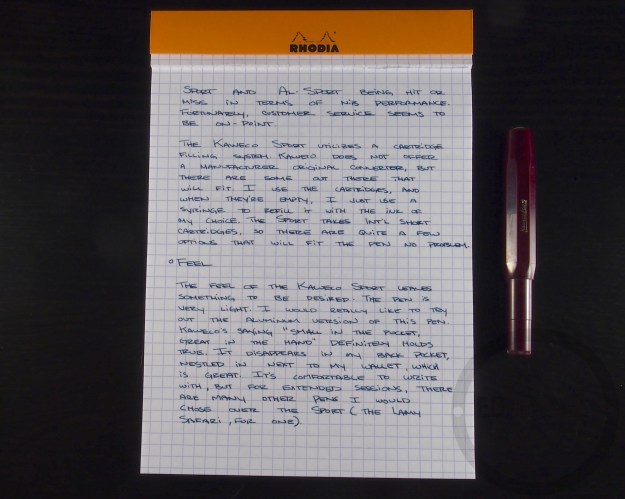 RHODIA
SPORT AND AL-SPORT BEING HIT OR
MISS IN TERMS OF NIB PERFORMANCE.
FORTUNATELY, CUSTOMER SERVICE SEEMS TO
BE ON-POINT.
THE KAWECO SPORT UTILIZES A CARTRIDGE
FILLING SYSTEM. KAWECO DOES NOT OFFER
A MANUFACTURER ORIGINAL CONVERTER, BUT
THERE ARE SOME OUT THERE THAT
WILL FIT. I USE THE CARTRIDGES, AND
WHEN THEY'RE EMPTY, I JUST USE A
SYRINGE TO REFILL IT WITH THE INK OF
MY CHOICE. THE SPORT TAKES INT'L SHORT
CARTRIDGES, SO THERE ARE QUITE A FEW
OPTIONS THAT WILL FIT THE PEN NO PROBLEM.
° FEEL
THE FEEL OF THE KAWECO SPORT LEAVES
SOMETHING TO BE DESIRED. THE PEN IS
VERY LIGHT. I WOULD REALLY LIKE TO TRY
OUT THE ALUMINUM VERSION OF THIS PEN.
KAWECO'S SAYING "SMALL IN THE POCKET,
GREAT IN THE HAND" DEFINITELY HOLDS
TRUE. IT DISAPPEARS IN MY BACK POCKET,
NESTLED IN NEXT TO MY WALLET, WHICH
IS GREAT. IT'S COMFORTABLE TO WRITE
WITH, BUT FOR EXTENDED SESSIONS, THERE
ARE MANY OTHER PENS I WOULD
CHOSE OVER THE SPORT (THE LAMY
SAFARI, FOR ONE).